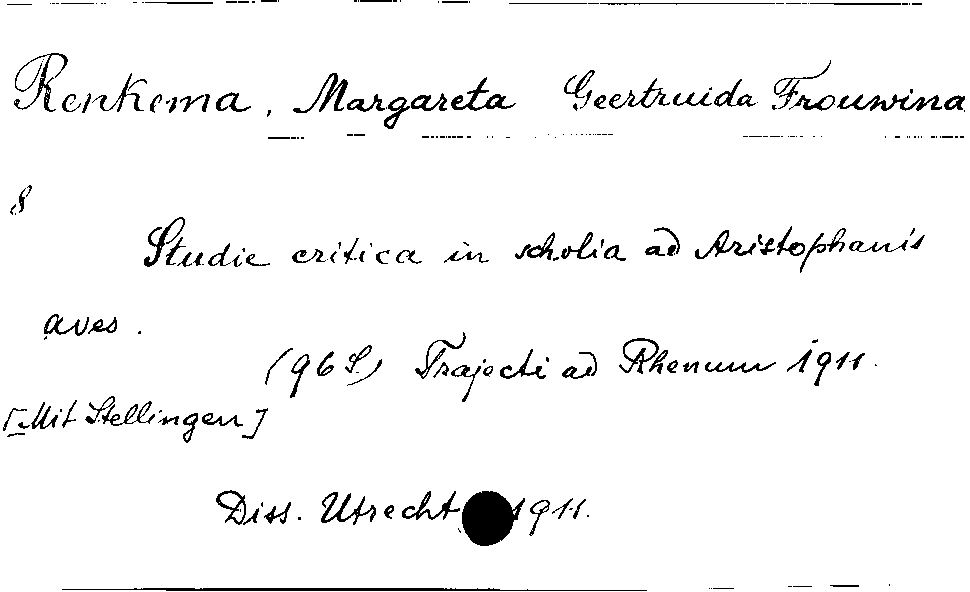 Renkema, Margareta Geertruida Frouwina
8
Studie critica in scholia ad Aristophanis
aves.
(96 S) Trajecti ad Rhenum 1911.
[Mit Stellingen]
Diss. Utrecht 1911.